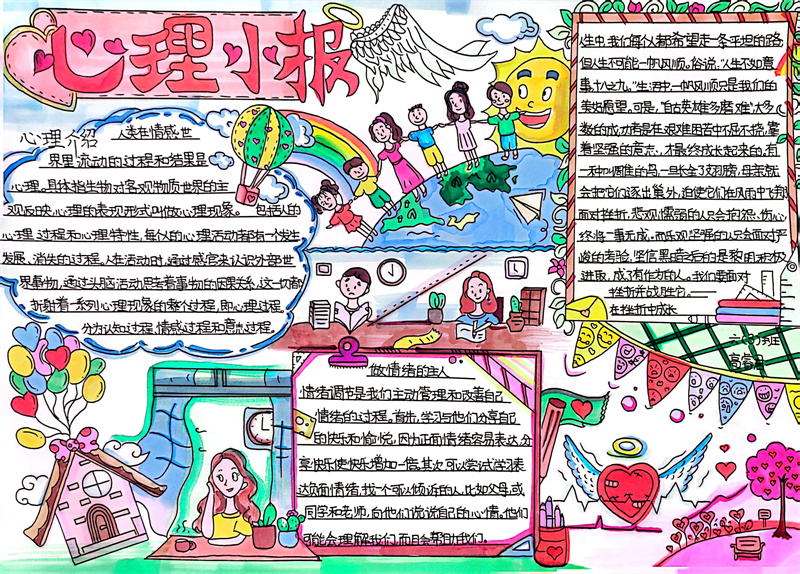 心理小报
心理介绍 人类在情感世
界里流动的过程和结果是
心理。具体指生物对客观物质世界的主
观反映,心理的表现形式叫做心理现象。包括人的
心理过程和心理特性,每个人的心理活动都有一个发生
发展、消失的过程。人在活动时,通过感官来认识外部世
界事物,通过头脑活动思考着事物的因果关系,这一切都
折射着一系列心理现象的整个过程,即心理过程
分为认知过程,情感过程和意志过程。
人生中,我们每个人都希望走一条平坦的路,
但人生不可能一帆风顺。俗说:"人生不如意
事十八九。"生活中一帆风顺只是我们的
美好愿望。可是,"自古英雄多磨难"大多
数的成功者是在艰难困苦中不屈不挠,靠
着坚强的意志,才最终成长起来的。有
一种叫雕隼的鸟,一旦长全了羽膀,母隼就
会把它们逐出巢外,迫使它们在风雨中飞翔
面对挫折,悲观懦弱的人只会抱怨、伤心,
终将一事无成。而乐观坚强的人只会面对严
峻的考验,坚信黑暗之后的是黎明,积极
进取,成了有作为的人。我们要面对
挫折并战胜它。
在挫折中成长
六(3)班
做情绪的主人
情绪调节是我们主动管理和改善自己
情绪的过程。首先,学习与他们分享自己
的快乐和愉悦,因为正面情绪容易表达,分
享快乐使快乐增加一倍。其次,可以尝试学习表
达负面情绪,找一个可以倾诉的人,比如父母,或
同学和老师,向他们说说自己的心情,他们
可能会理解我们,而且会帮助我们。